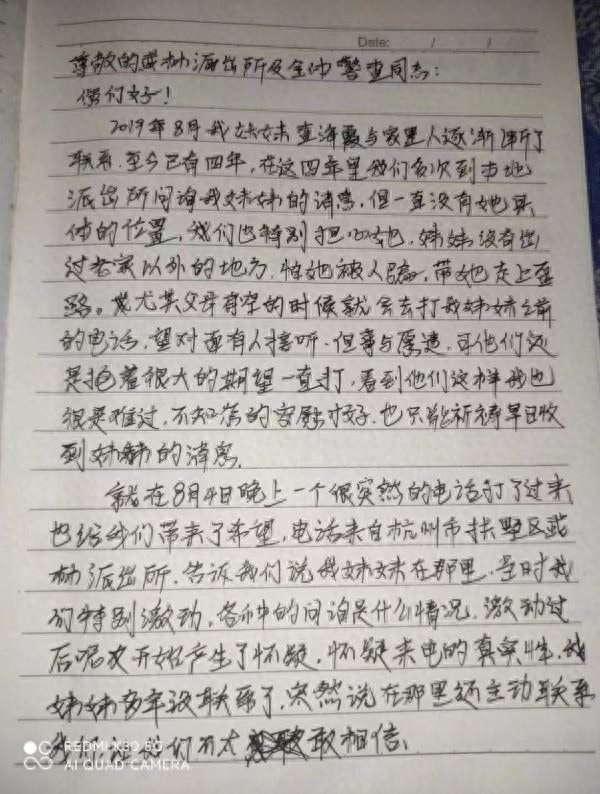 Date: / /
尊敬的武林派出所及全体警查同志:
你们好!
2019年8月我妹妹查海霞与家里人逐渐断了
联系.至今已有四年,在这四年里我们多次到本地
派出所问询我妹妹的消息,但一直没有她具
体的位置,我们也特别担心她.妹妹没有出
过老家以外的地方.怕她被人骗,带她走上歪
路。尤其父母有空的时候就会去打我妹妹之前
的电话,望对面有人接听.但事与愿违.可他们还
是抱着很大的期望一直打.看到他们这样我也
很是难过.不知怎的安慰才好.也只能祈祷早日收
到妹妹的消息.
就在8月4日晚上一个很突然的电话打了过来
也给我们带来了希望,电话来自杭州市拱墅区武
林派出所.告诉我们说我妹妹在那里.当时我
们特别激动,各种的问询是什么情况.激动过
后呢又开始产生了怀疑.怀疑来电的真实性.我
妹妹多年没联系了,突然说在那里还主动联系
我们让我们不太敢相信、
REDMI K30 5G
AI QUAD CAMERA